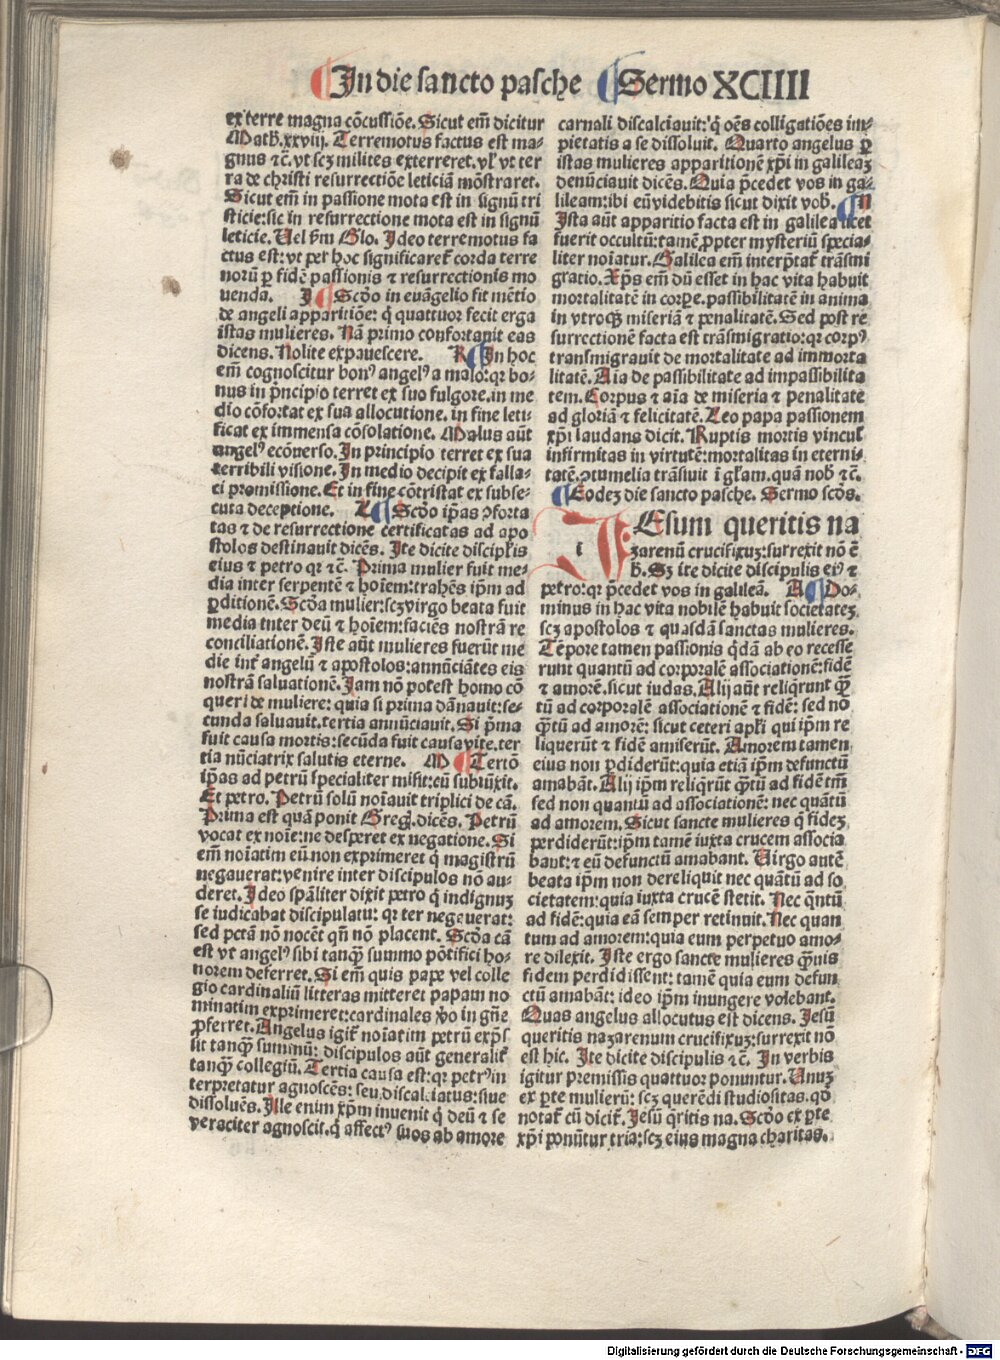 In die sancto pasche Sermo XCIIII
ex terre magna cōcussiōe. Sicut em̄ dicitur
Math. xxviij. Terremotus factus est ma⸗
gnus ⁊ c̄. vt scz milites exterreret. vl' vt ter
ra de christi resurrectiōe leticiā mōstraret.
Sicut em̄ in passione mota est in signū tri
sticie: sic in resurrectione mota est in signū
leticie. Uel s̄m Glo. Ideo terremotus fa
ctus est: vt per hoc significaret̄ corda terre
norū ꝑ fidē passionis ⁊ resurrectionis mo
uenda. I Scd̄o in euāgelio fit mētio
de angeli apparitiōe: q̇ quattuor fecit erga
istas mulieres. Nā primo confortauit eas
dicens. Nolite expauescere. K In hoc
em̄ cognoscitur bonꝰ angelꝰ a malo: qr bo⸗
nus in p̄ncipio terret ex suo fulgore. in me
dio cōfortat ex sua allocutione. in fine leti⸗
ficat ex immensa cōsolatione. Malus aūt
angelꝰ econuerso. In principio terret ex sua
terribili visione. In medio decipit ex falla⸗
ci promissione. Et in fine cōtristat ex subse⸗
cuta deceptione. L Scd̄o ip̄as ꝯforta
tas ⁊ de resurrectione certificatas ad apo
stolos destinauit dicēs. Ite dicite discipl̄is
eius ⁊ petro qr ⁊ c̄. Prima mulier fuit me⸗
dia inter serpentē ⁊ hoīem: trahēs ip̄m ad
ꝑditionē. Scd̄a mulier: scz virgo beata fuit
media inter deū ⁊ hoīem: faciēs nostrā re
conciliationē. Iste aūt mulieres fuerūt me
die int̄ angelū ⁊ apostolos: annūciātes eis
nostrā saluationē. Iam nō potest homo cō
queri de muliere: quia si prima dānauit: se⸗
cunda saluauit. tertia annūciauit. Si p̄ma
fuit causa mortis: secūda fuit causa vite. ter
tia nūciatrix salutis eterne. M Tertō
ip̄as ad petrū specialiter misit: cū subiūxit.
Et petro. Petrū solū noīauit triplici de cā.
Prima est quā ponit Gregꝰ. dicēs. Petrū
vocat ex noīe: ne desperet ex negatione. Si
em̄ noīatim eū non exprimeret q̇ magistrū
negauerat: venire inter discipulos nō au⸗
deret. Ideo spāliter dixit petro q̇ indignuz
se iudicabat discipulatu: qr ter negauerat:
sed pctā nō nocēt qn̄ nō placent. Scd̄a cā
est vt angelꝰ sibi tanqȝ summo pōtifici ho⸗
norem deferret. Si em̄ quis pape vel colle
gio cardinaliū litteras mitteret papam no
minatim exprimeret: cardinales v̊o in gn̄e
ꝓferret. Angelus igit̄ noīatim petrū exp̄s
sit tanqȝ summū: discipulos aūt generalit̄
tanqȝ collegiū. Tertia causa est: qr petrꝰ in
terpretatur agnoscēs: seu discalciatus: siue
dissoluēs. Ille enim xp̄m inuenit q̇ deū ⁊ se
veraciter agnoscit. q̇ affectꝰ suos ab amore
carnali discalciauit: q̇ oēs colligatiōes im⸗
pietatis a se dissoluit. Quarto angelus ꝑ
istas mulieres apparitionē xp̄i in galileaz
denūciauit dicēs. Quia p̄cedet vos in ga⸗
lileam: ibi eū videbitis sicut dixit vob̄. N
Ista aūt apparitio facta est in galilea licet
fuerit occultū: tamē ꝓpter mysteriū specia⸗
liter noīatur. Galilea em̄ interp̄tat̄ trāsmi
gratio. Xp̄s em̄ dū esset in hac vita habuit
mortalitatē in corpe. passibilitatē in anima
in vtroqȝ miseriā ⁊ penalitatē. Sed post re
surrectionē facta est trāsmigratio: qr corpꝰ
transmigrauit de mortalitate ad immorta
litatē. Aīa de passibilitate ad impassibilita
tem. Corpus ⁊ aīa de miseria ⁊ penalitate
ad gloriā ⁊ felicitatē. Leo papa passionem
xp̄i laudans dicit. Ruptis mortis vincul'
infirmitas in virtutē: mortalitas in eterni⸗
tatē. ꝯtumelia trāsiuit ī gl̄am. quā nob̄ ⁊ c̄.
Eodez die sancto pasche. Sermo scd̄s.
IEsum queritis na
zarenū crucifixuz: surrexit nō ē
h̄. Sz ite dicite discipulis eiꝰ ⁊
petro: qr p̄cedet vos in galileā. A Do⸗
minus in hac vita nobilē habuit societatez.
scz apostolos ⁊ quasdā sanctas mulieres.
Tēpore tamen passionis q̇dā ab eo recesse
runt quantū ad corporalē associationē: fidē
⁊ amorē. sicut iudas. Alij aūt reliqrunt qȝ̄
tū ad corporalē associationē ⁊ fidē: sed nō
qȝ̄tū ad amorē: sicut ceteri apl̄i qui ip̄m re
liquerūt ⁊ fidē amiserūt. Amorem tamen
eius non ꝑdiderūt: quia etiā ip̄m defunctū
amabāt. Alij ip̄m reliqrūt qȝ̄tū ad fidē tm̄
sed non quantū ad associationē: nec quātū
ad amorem. Sicut sancte mulieres q̇ fidez
perdiderūt: ip̄m tamē iuxta crucem associa
bant: ⁊ eū defunctū amabant. Uirgo autē
beata ip̄m non dereliquit nec quātū ad so
cietatem: quia iuxta crucē stetit. Nec qntū
ad fidē: quia eā semper retinuit. Nec quan
tum ad amorem: quia eum perpetuo amo⸗
re dilexit. Iste ergo sancte mulieres qȝuis
fidem perdidissent: tamē quia eum defun
ctū amabāt: ideo ip̄m inungere volebant.
Quas angelus allocutus est dicens. Jesū
queritis nazarenum crucifixuz: surrexit nō
est hic. Ite dicite discipulis ⁊ c̄. In verbis
igitur premissis quattuor ponuntur. Unuz
ex ꝑte mulierū: scz querēdi studiositas. qd̄
notat̄ cū dicit̄. Jesū q̄ritis na. Scd̄o ex ꝑte
xp̄i ponūtur tria: scz eius magna charitas.
Digitalisierung gefördert durch die Deutsche Forschungsgemeinschaft - DFG